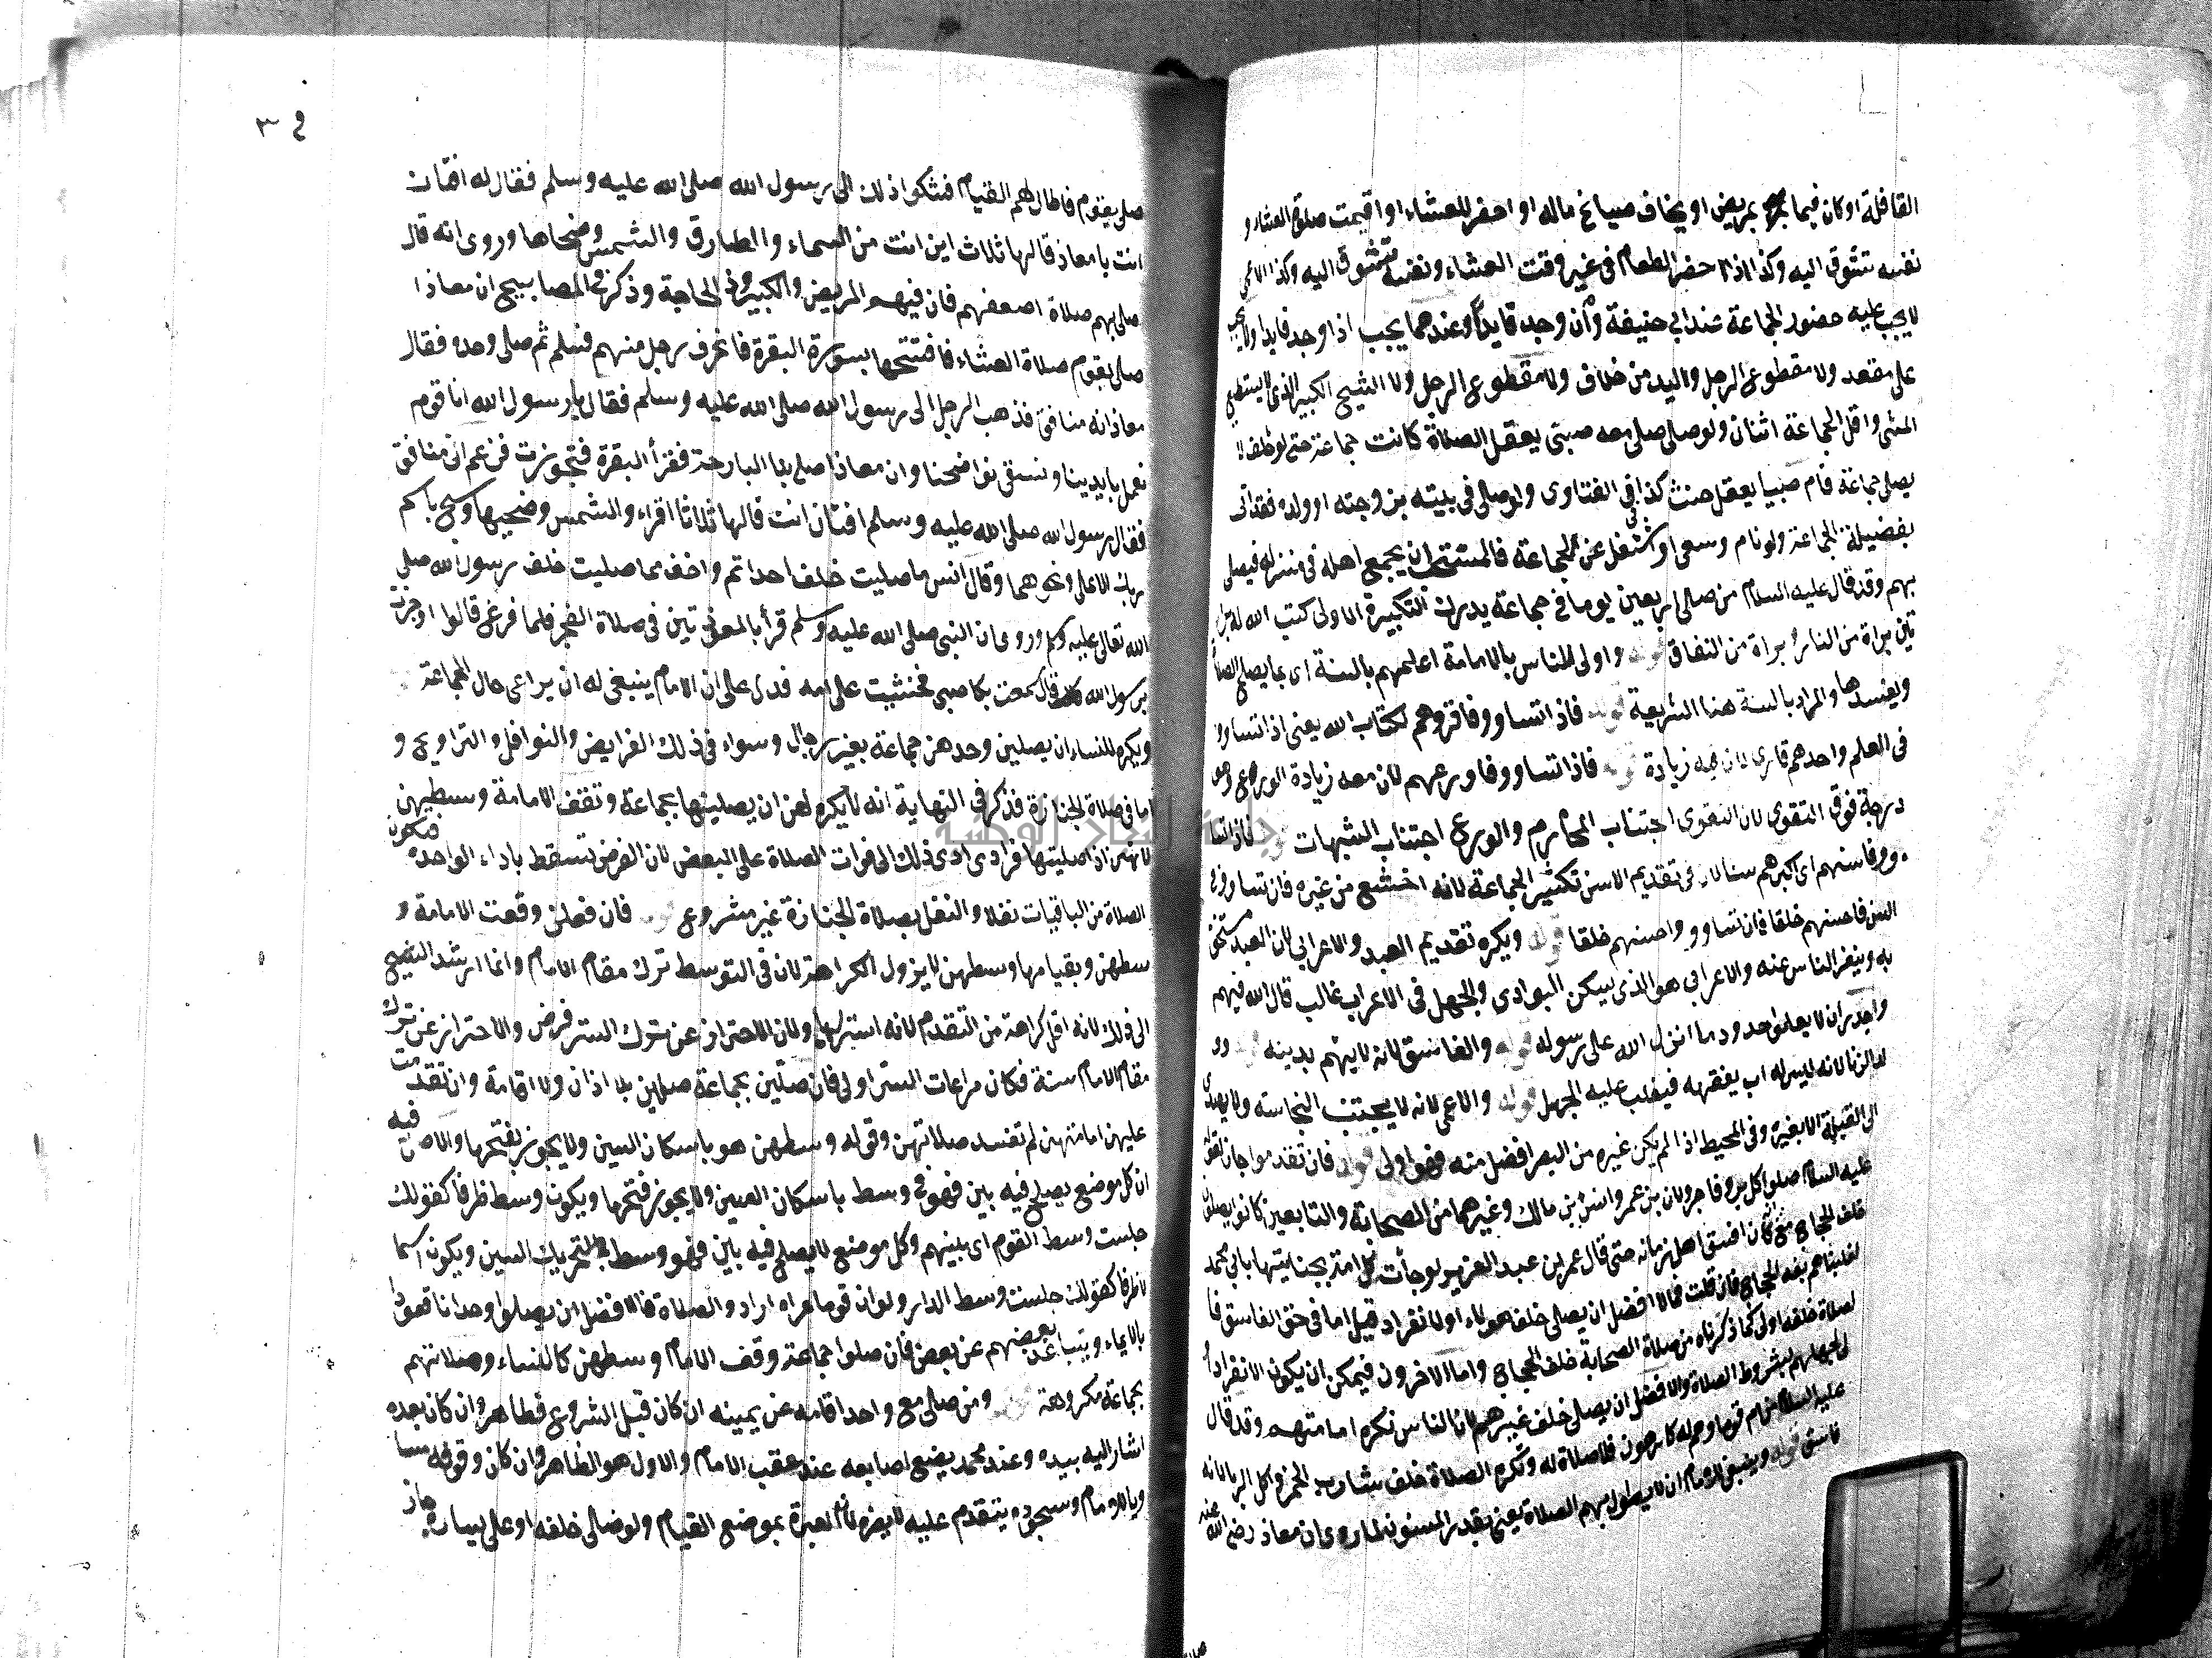 القافلة او كان فيما بمريض او يخاف ضياع ماله او احضر للعشاء او اقيمت صلوة العشاء و
نفسه تتشوق اليه وكذا اذا حضر الطعام فى غير وقت العشاء ونفسه تتشوق اليه وكذا الاعمى
لا يجب عليه حضور الجماعة عند ابي حنيفة وان وجد قايدا وعندهما يجب اذا وجد قايدا ولا يجب
على مقعد ولا مقطوع الرجل واليد من خلاف ولا مقطوع الرجل ولا الشيخ الكبير الذى لا يستطيع
المشى واقل الجماعة اثنان ولو صلى معه صبى يعقل الصلاة كانت جماعة حتى لو حلف لا
يصلى جماعة فام صبيا يعقل حنث كذا فى الفتاوى ولو صلى فى بيته بزوجته او ولده فقد اتى
بفضيلة الجماعة ولو نام وسهى او شغل عن الجماعة فالمستحب ان يجمع اهله فى منزله فيصلى
بهم وقد قال عليه السلام من صلى اربعين يوما فى جماعة يدرك التكبيرة الاولى كتب الله له برا
تين براة من النار وبراة من النفاق قوله واولى الناس بالامامة اعلمهم بالسنة اى بما يصلح الصلاة
ويفسدها والمراد بالسنة هنا الشريعة قوله فاذا تساووا فاقروهم لكتاب الله يعنى اذا تساووا
فى العلم واحدهم قارى لان فيه زيادة قوله فاذا تساووا فاورعهم لان معه زيادة الورع وهى
درجة فوق التقوى لان التقوى اجتناب المحارم والورع اجتناب الشبهات قوله فاذا تسا
ووا فاسنهم اى اكبرهم سنا لان فى تقديم الاسن تكثير الجماعة لانه اخشع من غيره فان تساووا فى
السن فاحسنهم خلقا فان تساووا واحسنهم خلقا قوله ويكره تقديم العبد والاعرابي لان العبد مستخف
به وينفر الناس عنه والاعرابي هو الذى يسكن البوادى والجهل فى الاعراب غالب قال الله فيهم
واجدر ان لا يعلموا حدود ما انزل الله على رسوله قوله والفاسق لانه لا يتهم بدينه قوله وو
لد الزنا لانه ليس له اب يفقهه فيغلب عليه الجهل قوله والاعمى لانه لا يجتنب النجاسة ولا يهتدى
الى القبلة الا بغيره وفى المحيط اذا لم يكن غيره من البصر افضل منه فهو اولى قوله فان تقدموا جاز لقوله
عليه السلام صلوا خلف كل بر وفاجر ولان بن عمر وانس بن مالك وغيرهما من الصحابة والتابعين كانوا يصلون
خلف الحجاج مع انه كان افسق اهل زمانه حتى قال عمر بن عبد العزيز لو جأت كل امة بخبيثتها بابي محمد
لغلبناهم يعنى الحجاج فان قلت فما الافضل ان يصلى خلف هولاء او الانفراد قيل اما فى حق الفاسق فا
لصلاة خلفه اولى كما ذكرناه من صلاة الصحابة خلف الحجاج واما الاخرون فيمكن ان يكون الانفراد او
لى لجهلهم بشروط الصلاة والافضل ان يصلى خلف غيرهم لان الناس تكره امامتهم وقد قال
عليه السلام من ام قوما وهم له كارهون فلا صلاة له وتكره الصلاة خلف شارب الخمر واكل الربا لانه
فاسق قوله وينبغى للامام ان لا يطول بهم الصلاة يعنى بقدر المسنون لما روى ان معاذ رضى الله عنه
٣ و
صلى بقوم فاطال لهم القيام فشكوا ذلك الى رسول الله صلى الله عليه وسلم فقال له افتان
انت يا معاذ قالها ثلاث اين انت من السماء والطارق والشمس وضحاها وروى انه قال
صلى بهم صلاة اضعفهم فان فيهم المريض والكبير وذى الحاجة وذكر فى المصابيح ان معاذا
صلى بقوم صلاة العشاء فافتتحها بسورة البقرة فانحرف رجل منهم فسلم ثم صلى وحده فقال
معاذ انه منافق فذهب الرجل الى رسول الله صلى الله عليه وسلم فقال يا رسول الله انا قوم
نعمل بايدينا ونسقى نواضحنا وان معاذا صلى بنا البارحة فقرأ البقرة فتجوزت فزعم انى منافق
فقال رسول الله صلى الله عليه وسلم افتان انت قالها ثلاثا اقراء والشمس وضحيها وسبح باسم
ربك الاعلى ونحوهما وقال انس ما صليت خلف احد اتم واخف مما صليت خلف رسول الله صلى
الله تعالى عليه وسلم وروى ان النبى صلى الله عليه وسلم قرأ بالمعوذتين فى صلاة الفجر فلما فرغ قالوا اوجزت
يرسول الله قال سمعت بكا صبى فخشيت على امه فدل على ان الامام ينبغى له ان يراعى حال الجماعة قوله
ويكره للنساء ان يصلين وحدهن جماعة بغير رجال وسواء فى ذلك الفرايض والنوافل والتراويح و
اما فى صلاة الجنازة فذكر فى النهاية انه لا يكره لهن ان يصلينها بجماعة وتقف الامامة وسطهن
لانهن اذا صلينها فرادى ادى ذلك الى فوات الصلاة على البعض لان الفرض تسقط باداء الواحدة فيكون
الصلاة من الباقيات نفلا والنفل بصلاة الجنازة غير مشروع قوله فان فعلن وقفت الامامة و
سطهن وبقيامها وسطهن لا يزول الكراهة لان فى التوسط ترك مقام الامام وانما ارشد الشيخ
الى ذلك لانه اقل كراهة من التقدم لانه استر لها ولان الاحتراز عن ترك الستر فرض والاحتراز عن ترك
مقام الامام سنة فكان مراعات الستر اولى فان صلين بجماعة صلين بلا اذان ولا اقامة وان تقدمت
عليهن امامتهن لم تفسد صلاتهن وقوله وسطهن هو باسكان السين ولا يجوز بفتحها والاصل فيه
ان كل موضع يصلح فيه بين فهو وسط باسكان السين ولا يجوز فتحها ويكون وسط ظرفا كقولك
جلست وسط القوم اى بينهم وكل موضع لا يصلح فيه بين فهو وسط بالتحريك السين ويكون اسما
لا ظرفا كقولك جلست وسط الدار ولو ان قوما عراه ارادوا الصلاة فالافضل ان يصلوا وحدانا قعودا
بالايماء ويتباعد بعضهم عن بعض فان صلوا جماعة وقف الامام وسطهن كالنساء وصلاتهم
بجماعة مكروهة قوله ومن صلى مع واحد اقامه عن يمينه ان كان قبل الشروع فظاهر وان كان بعده
اشار اليه بيده وعند محمد يضع اصابعه عند عقب الامام والاول هو الظاهر وان كان وقوفه مسا
ويا للامام وسجوده يتقدم عليه لا يضره لان العبرة بموضع القيام ولو صلى خلفه او على يساره جاز